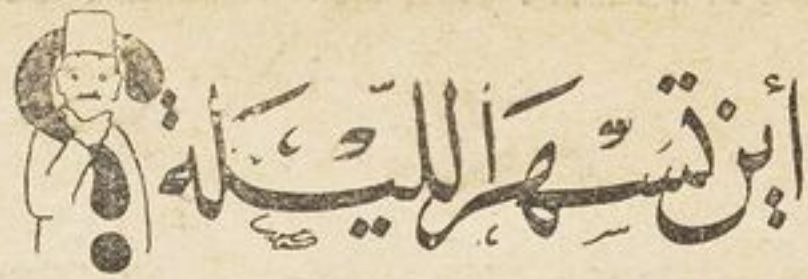 أين تسهر الليلة؟